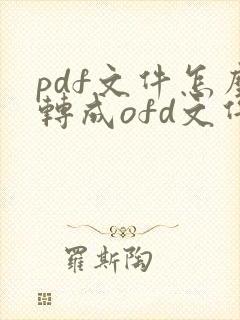 pdf文件怎麼
轉成ofd文件
羅斯陶